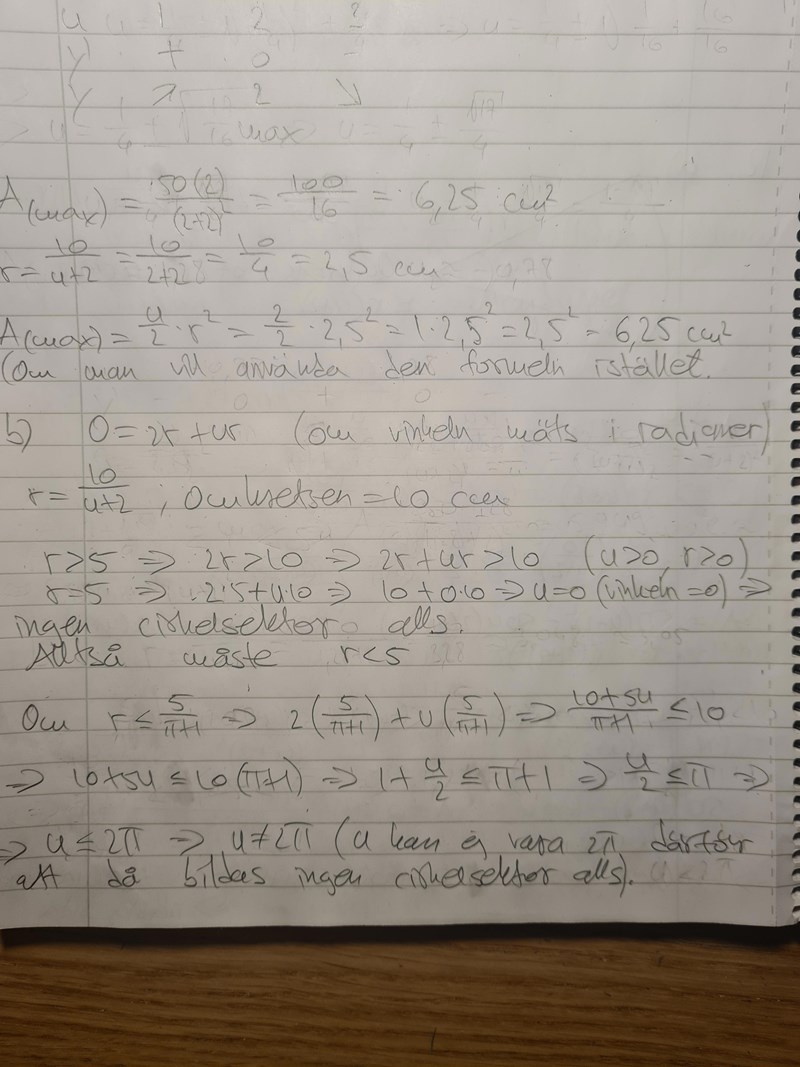 u 1 2 ?
y' + 0 -
y ↗ 2 ↘
max
A(max) = 50(2)/(2+2)² = 100/16 = 6,25 cm²
r = 10/(u+2) = 10/(2+2) = 10/4 = 2,5 cm
A(max) = u/2 · r² = 2/2 · 2,5² = 1 · 2,5² = 2,5² = 6,25 cm²
(Om man vill använda den formeln istället.
b) O = 2r + ur (om vinkeln mäts i radianer)
r = 10/(u+2) ; Omkretsen = 10 cm
r>5 ⇒ 2r>10 ⇒ 2r+ur>10 (u>0, r>0)
r=5 ⇒ 2·5+u·10 ⇒ 10+0·10 ⇒ u=0 (vinkeln =0) ⇒
ingen cirkelsektor alls.
Alltså måste r<5
Om r ≤ 5/(π+1) ⇒ 2(5/(π+1)) + u(5/(π+1)) ⇒ (10+5u)/(π+1) ≤ 10
⇒ 10+5u ≤ 10(π+1) ⇒ 1+u/2 ≤ π+1 ⇒ u/2 ≤ π ⇒
⇒ u ≤ 2π ⇒ u ≠ 2π (u kan ej vara 2π därför
att då bildas ingen cirkelsektor alls).